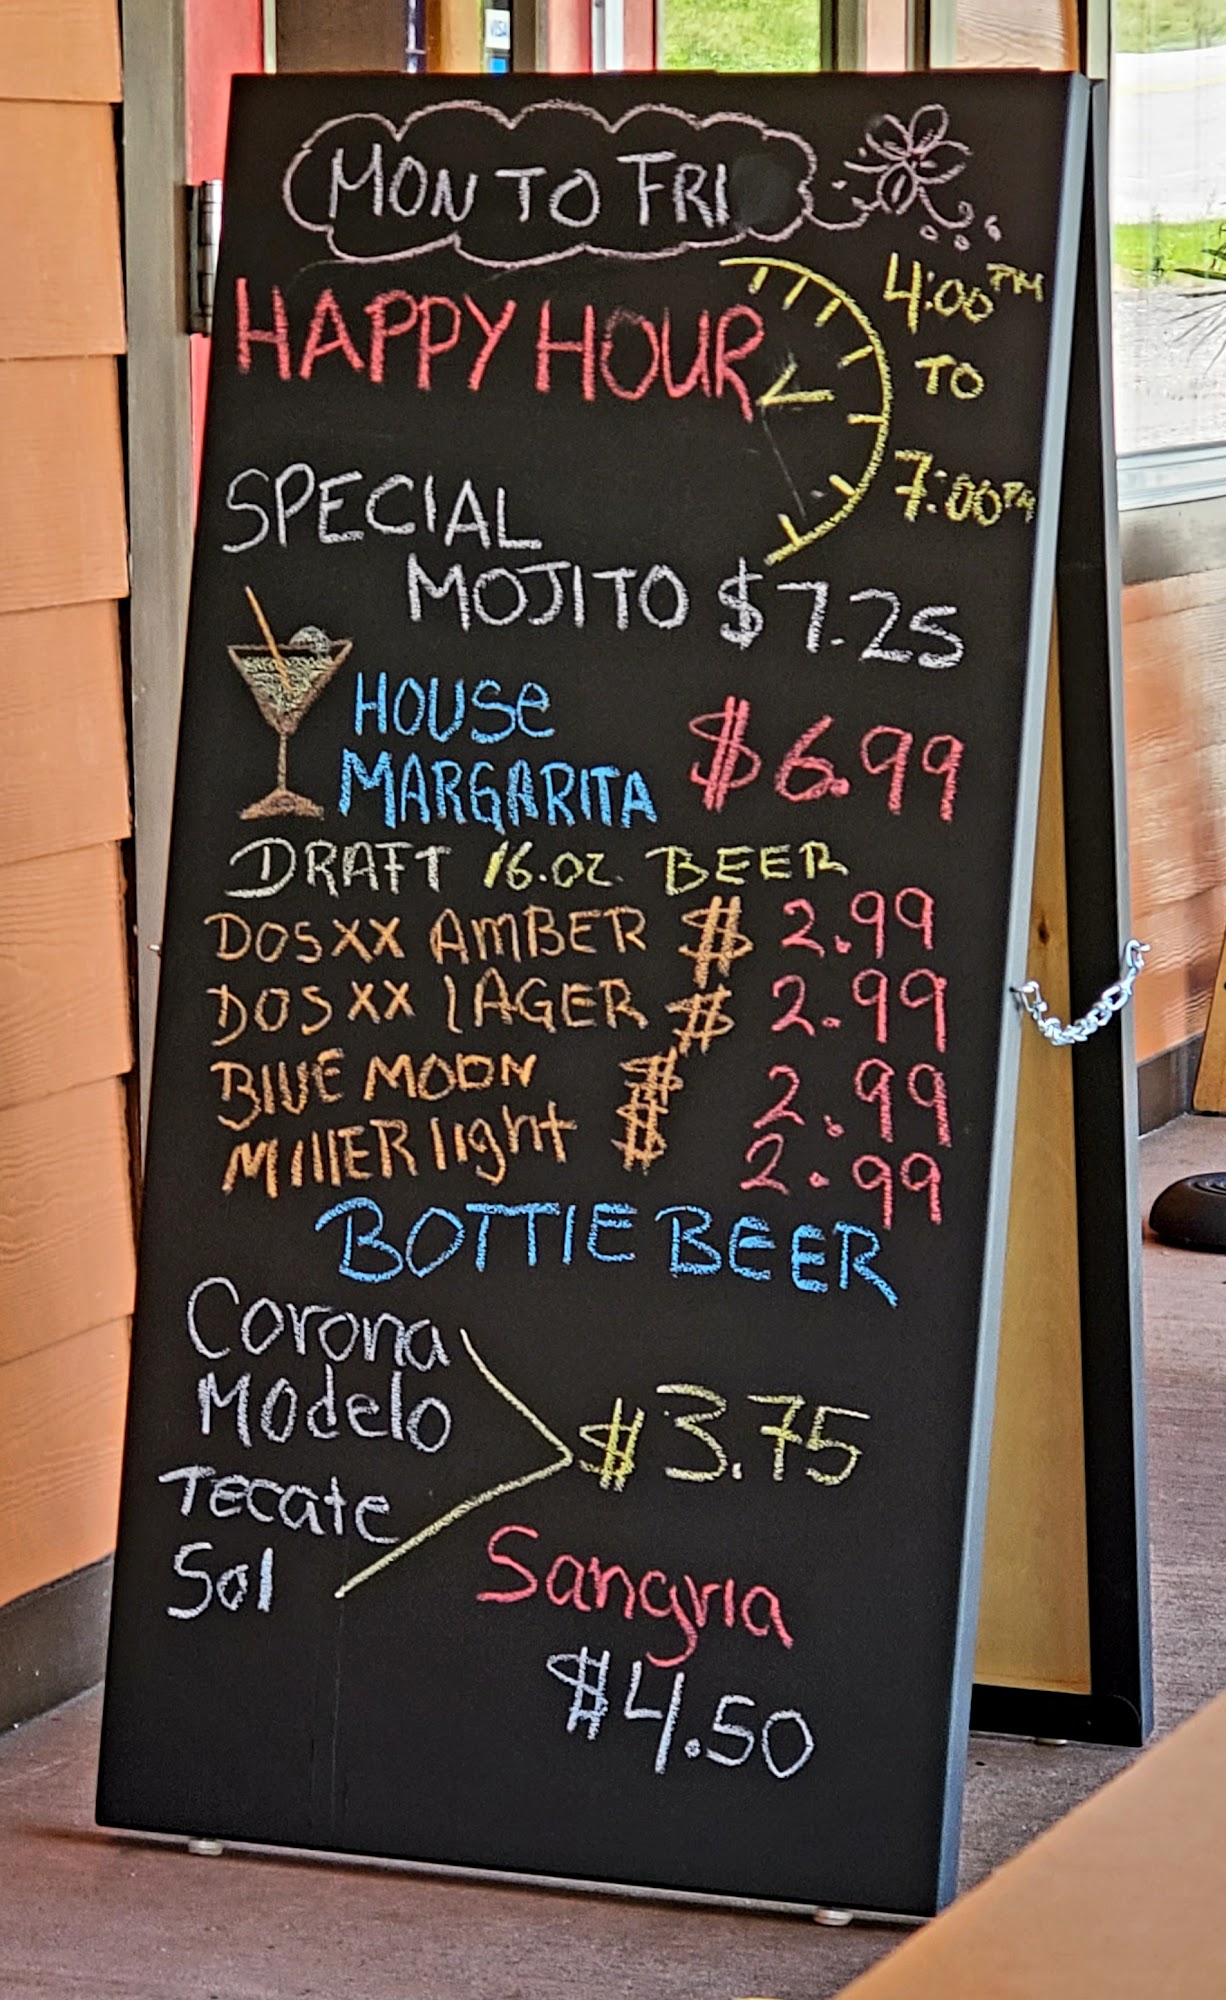 VISA
MON TO FRI
HAPPY HOUR
4:00 PM
TO
7:00 PM
SPECIAL
MOJITO $7.25
HOUSE
MARGARITA $6.99
DRAFT 16.oz. BEER
DOSXX AMBER $ 2.99
DOSXX LAGER $ 2.99
BLUE MOON $ 2.99
MIllER light $ 2.99
BOTTlE BEER
Corona
Modelo
$3.75
Tecate
Sol
Sangria
$4.50